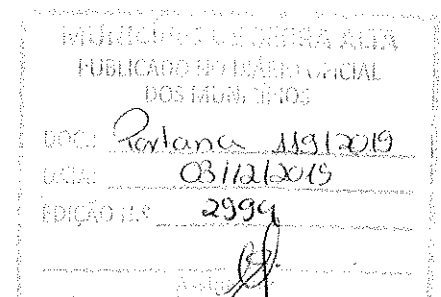 MUNICÍPIO DE SERRA ALTA
PUBLICADO NO DIÁRIO OFICIAL
DOS MUNICÍPIOS
DOC.: Portaria 119/2019
DATA: 03/12/2019
EDIÇÃO N.º 2994
Assinatura